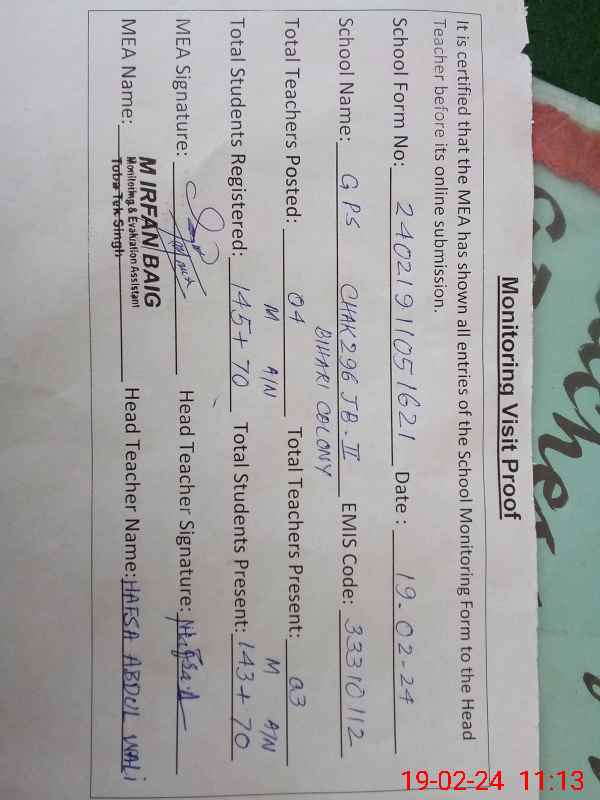 Monitoring Visit Proof
It is certified that the MEA has shown all entries of the School Monitoring Form to the Head
Teacher before its online submission.
School Form No: 24021911051621 Date : 19-02-24
School Name: GPS CHAK 296 JB-II EMIS Code: 33310112
BIHARI COLONY
Total Teachers Posted: 04 Total Teachers Present: 03
M A/N M A/N
Total Students Registered: 145+70 Total Students Present: 143+70
MEA Signature: Head Teacher Signature: Hafsa.A
M IRFAN BAIG
Monitoring & Evaluation Assistant
Toba Tek Singh
MEA Name: Head Teacher Name: HAFSA ABDUL WALI
19-02-24 11:13